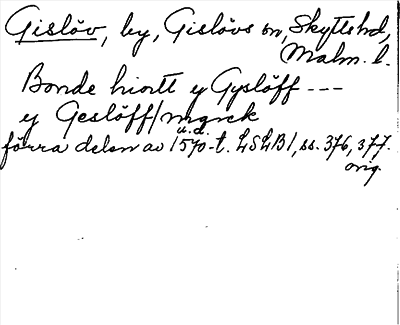 Gislöv, by, Gislövs sn, Skytts hd,
Malm. l.
Bonde hiortt y Gyslöff ---
y Geslöff / mgrek
u.d.
förra delen av 1570-t. LSLB1, ss. 376, 377.
orig.